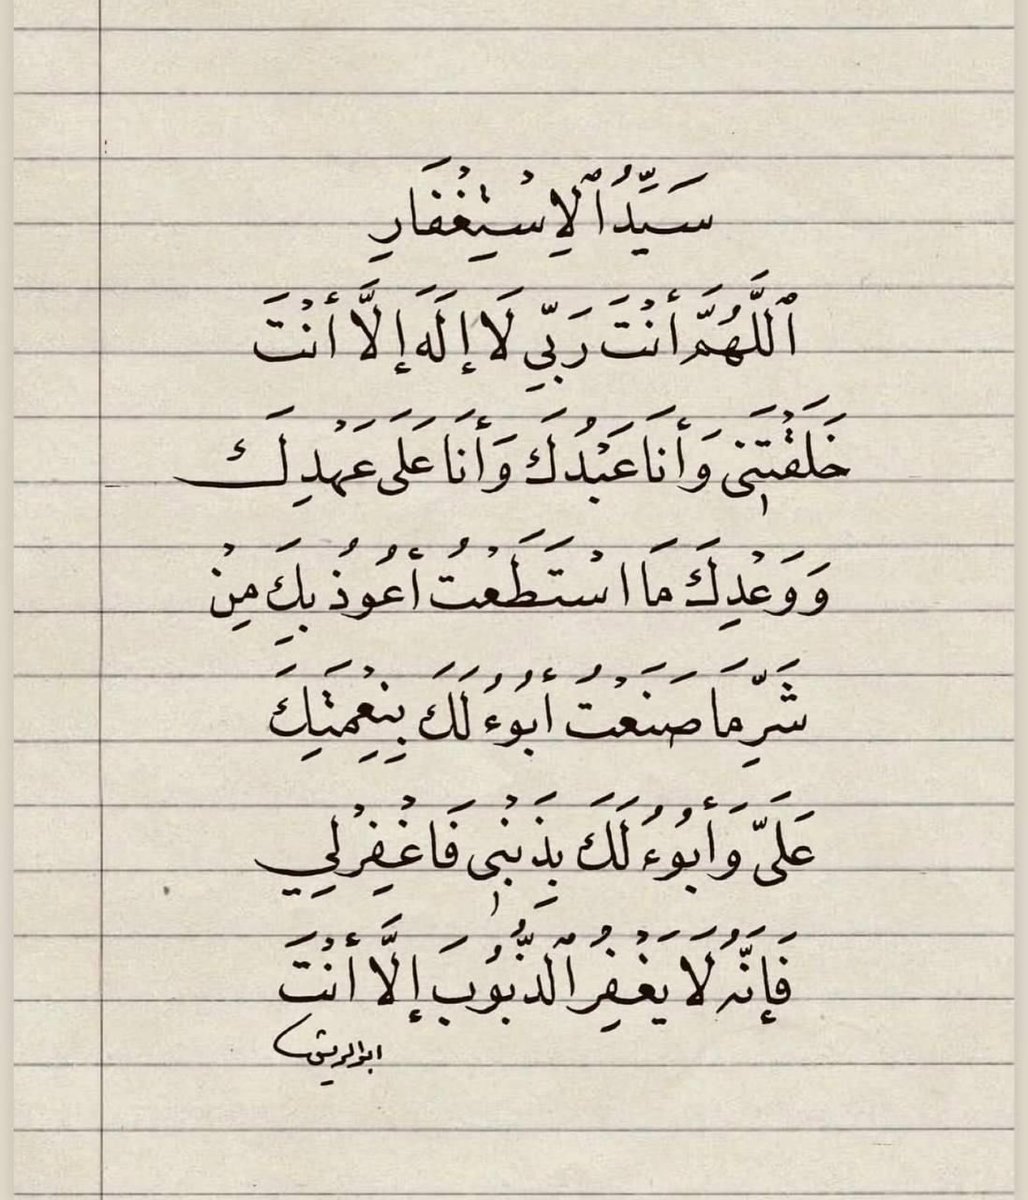 سَيِّدُ ٱلِاسْتِغْفَارِ
ٱللَّهُمَّ أَنْتَ رَبِّي لَا إِلَهَ إِلَّا أَنْتَ
خَلَقْتَنِى وَأَنَا عَبْدُكَ وَأَنَا عَلَى عَهْدِكَ
وَوَعْدِكَ مَا اسْتَطَعْتُ أَعُوذُ بِكَ مِنْ
شَرِّ مَا صَنَعْتُ أَبُوءُ لَكَ بِنِعْمَتِكَ
عَلَىَّ وَأَبُوءُ لَكَ بِذَنْبِى فَاغْفِرْ لِي
فَإِنَّهُ لَا يَغْفِرُ ٱلذُّنُوبَ إِلَّا أَنْتَ